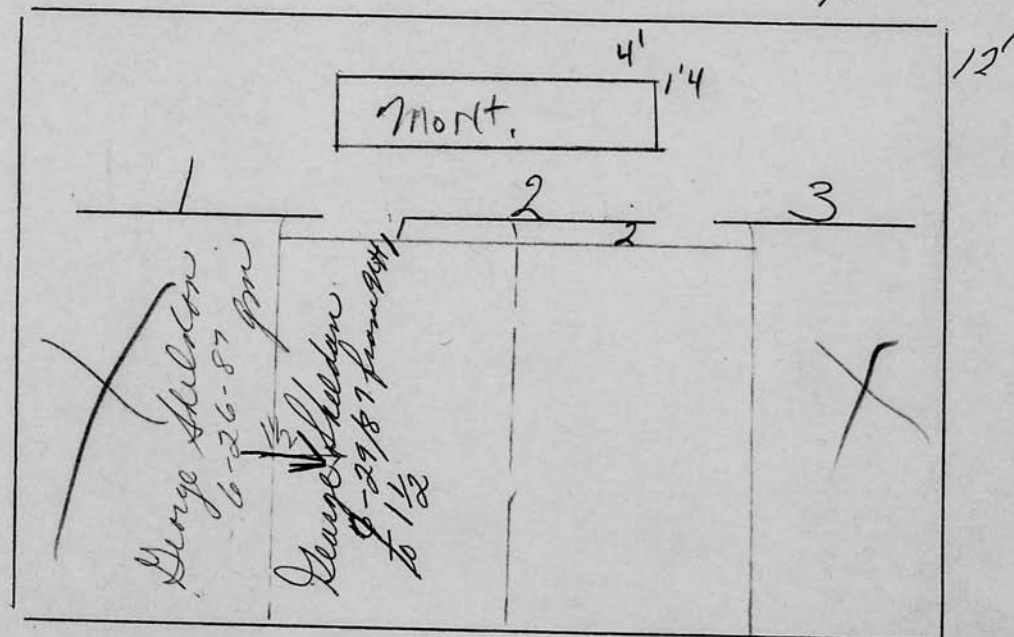 12'
4'
1'4
Mont.
1
2
3
1
2
George Sheldon
6-26-87
pm
1/2
George Sheldon
6-29/87 from
to 1 1/2
X
X